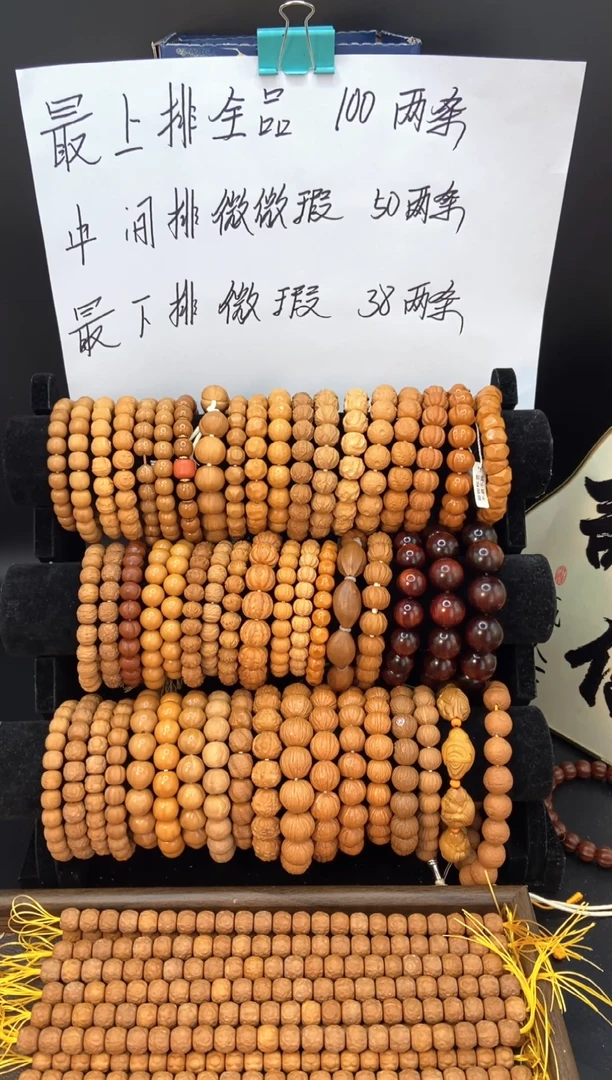 最上排全品 100两条
中间排微微瑕 50两条
最下排微瑕 38两条